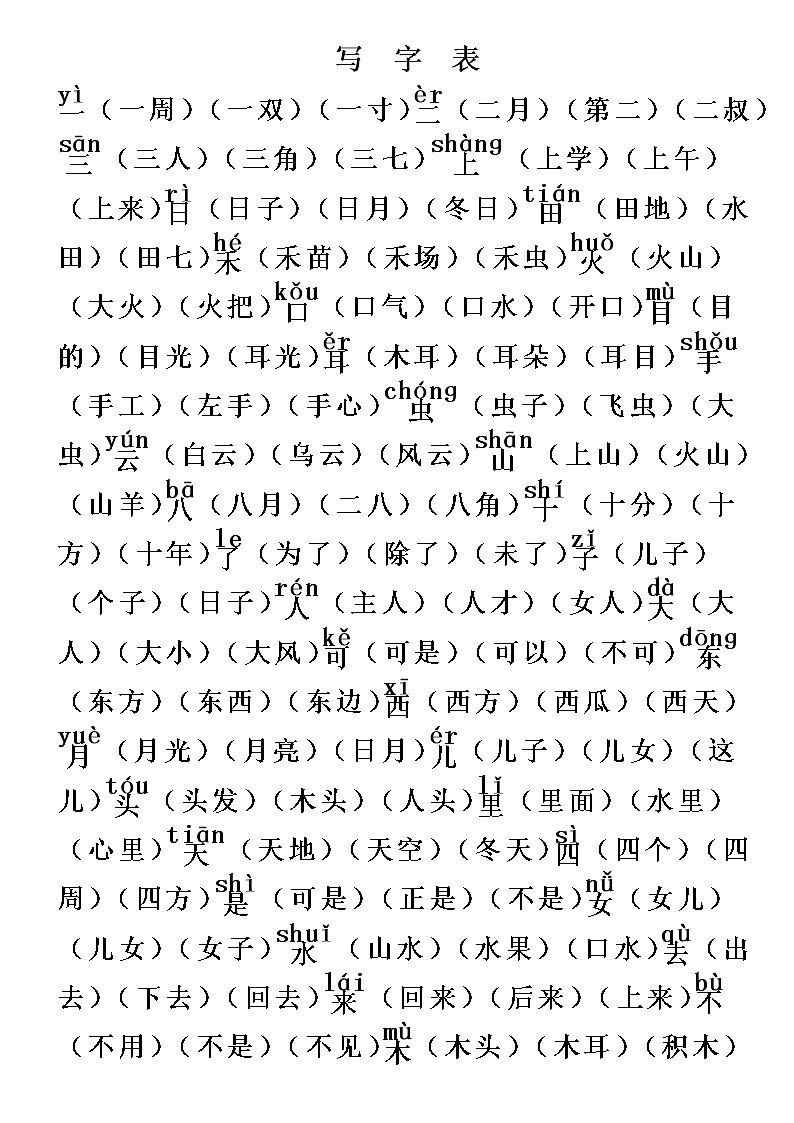 写 字 表
yì一（一周）（一双）（一寸）èr二（二月）（第二）（二叔）
sān三（三人）（三角）（三七）shàng上（上学）（上午）
（上来）rì日（日子）（日月）（冬日）tián田（田地）（水
田）（田七）hé禾（禾苗）（禾场）（禾虫）huǒ火（火山）
（大火）（火把）kǒu口（口气）（口水）（开口）mù目（目
的）（目光）（耳光）ěr耳（木耳）（耳朵）（耳目）shǒu手
（手工）（左手）（手心）chóng虫（虫子）（飞虫）（大
虫）yún云（白云）（乌云）（风云）shān山（上山）（火山）
（山羊）bā八（八月）（二八）（八角）shí十（十分）（十
方）（十年）le了（为了）（除了）（未了）zǐ子（儿子）
（个子）（日子）rén人（主人）（人才）（女人）dà大（大
人）（大小）（大风）kě可（可是）（可以）（不可）dōng东
（东方）（东西）（东边）xī西（西方）（西瓜）（西天）
yuè月（月光）（月亮）（日月）ér儿（儿子）（儿女）（这
儿）tóu头（头发）（木头）（人头）lǐ里（里面）（水里）
（心里）tiān天（天地）（天空）（冬天）sì四（四个）（四
周）（四方）shì是（可是）（正是）（不是）nǚ女（女儿）
（儿女）（女子）shuǐ水（山水）（水果）（口水）qù去（出
去）（下去）（回去）lái来（回来）（后来）（上来）bù不
（不用）（不是）（不见）mù木（木头）（木耳）（积木）